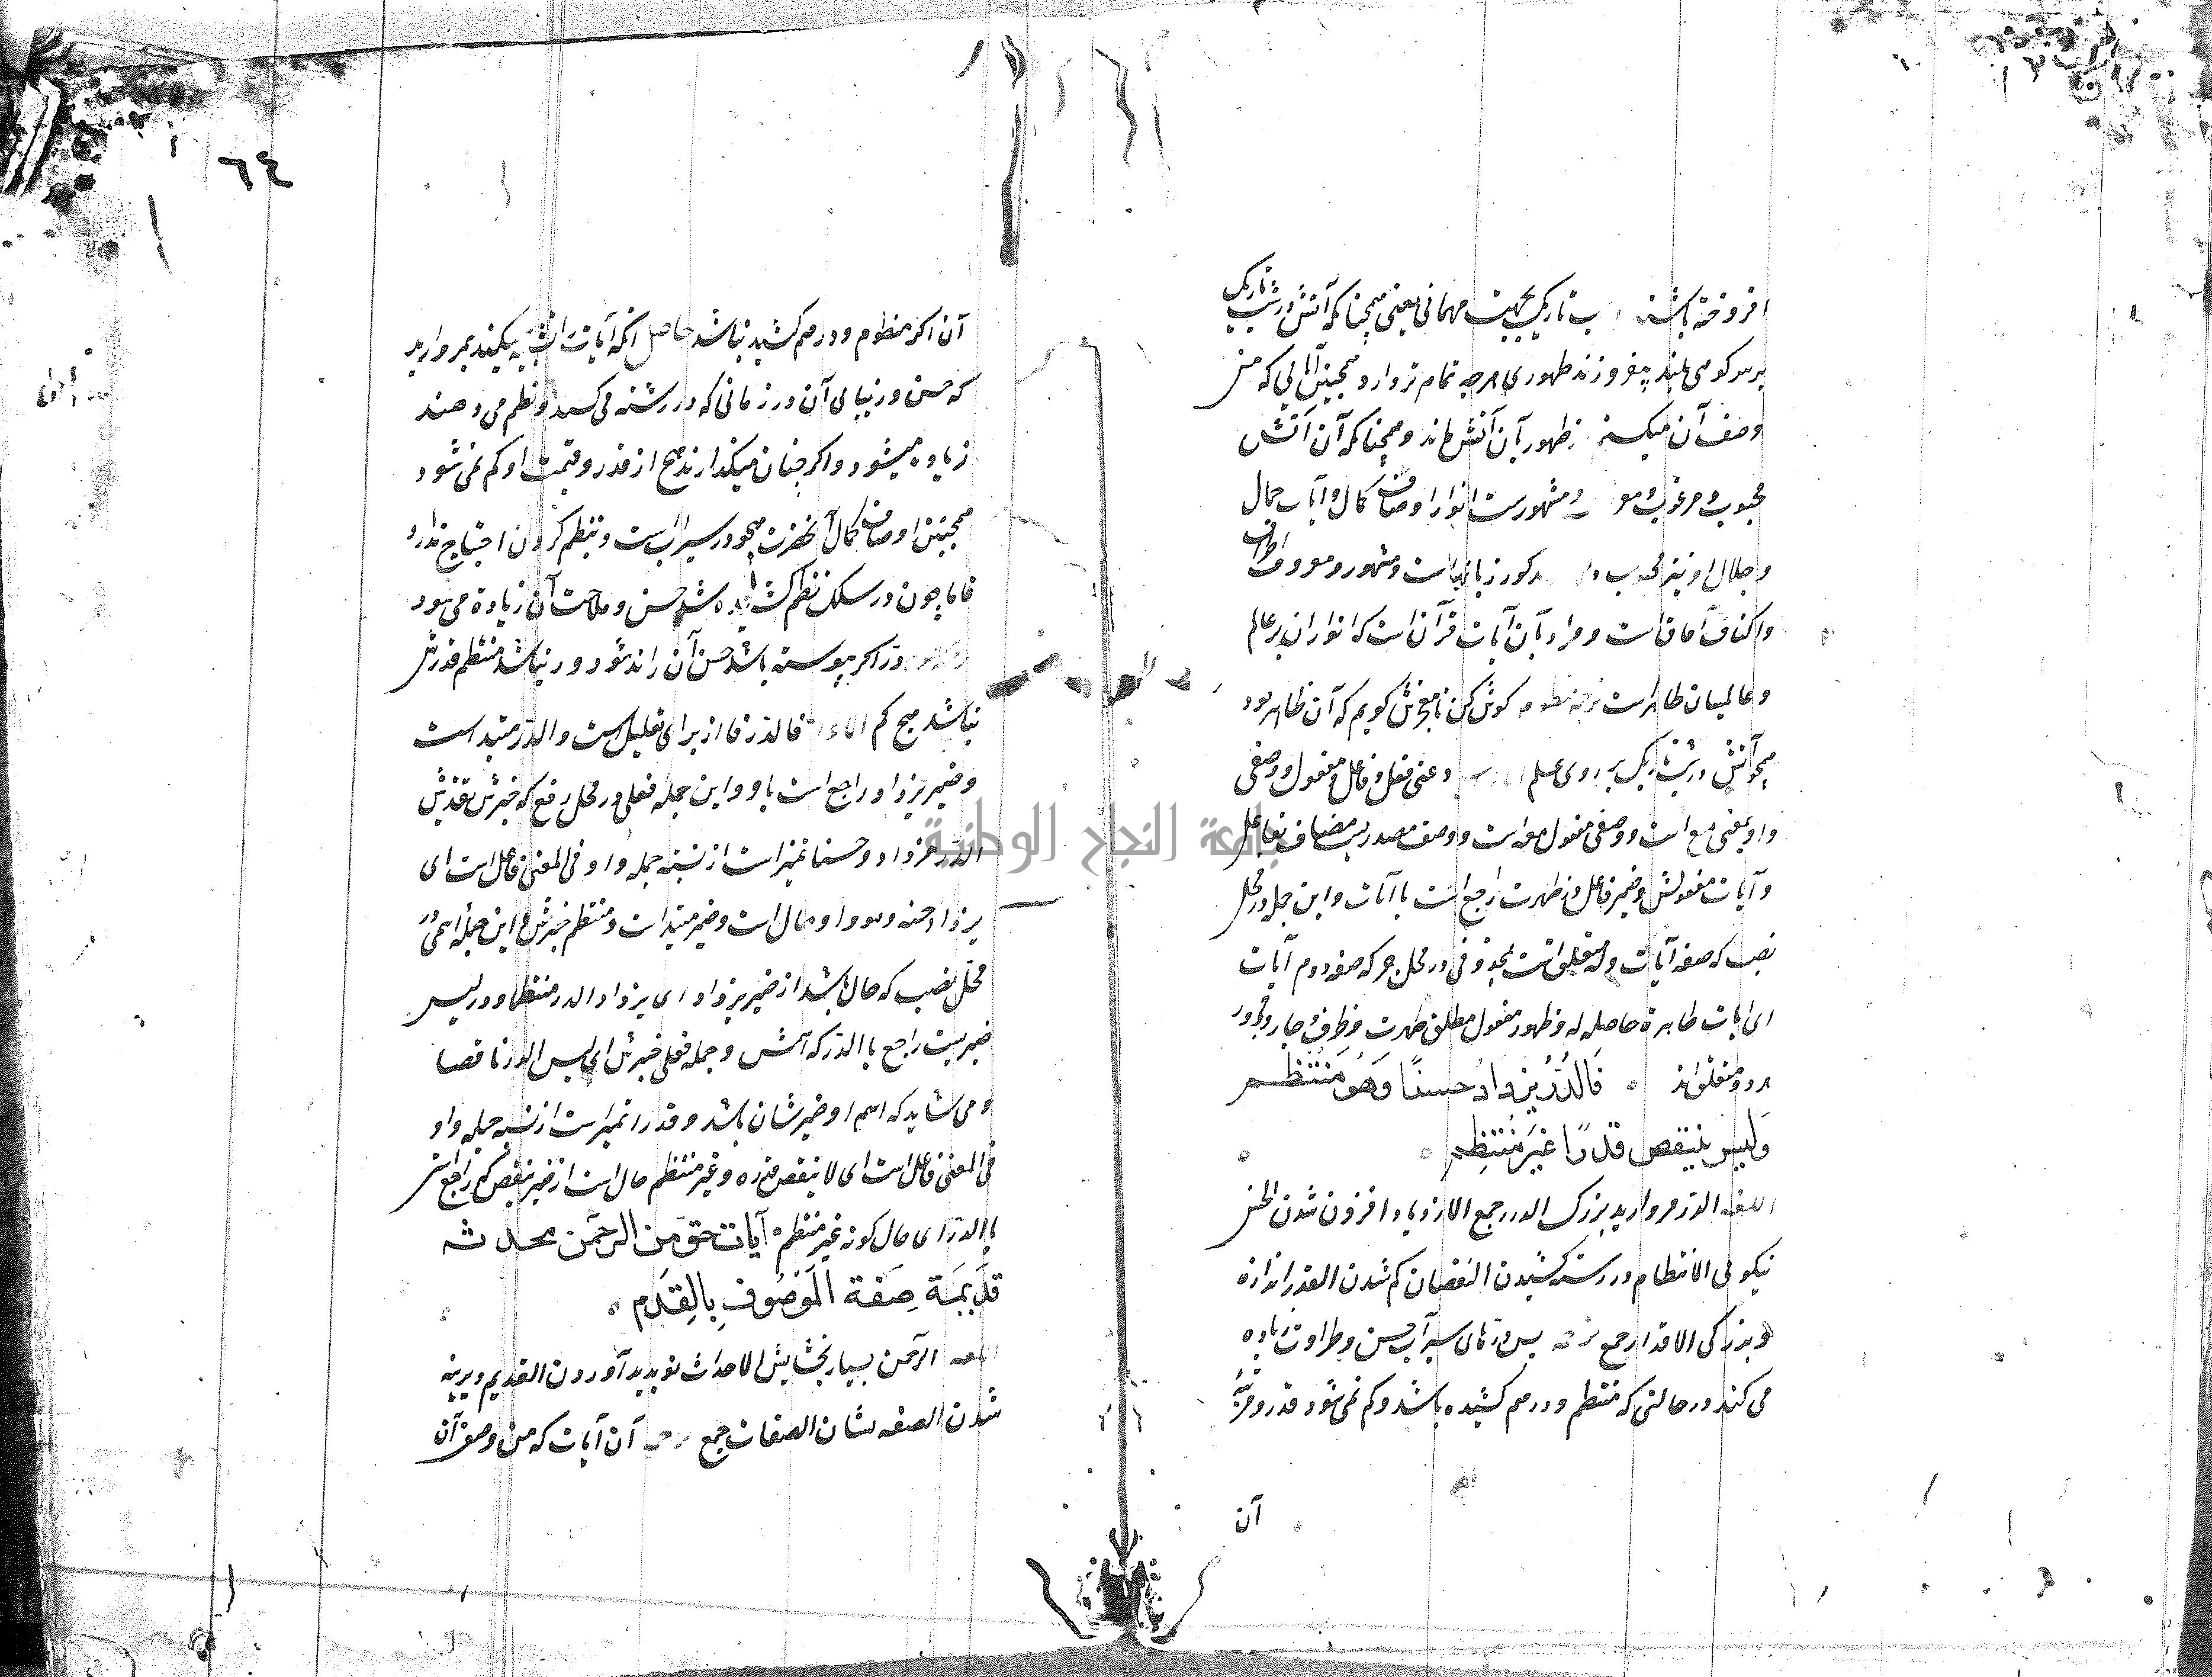 افروخته باشند شب تاریک بجهت مهمانی یعنی همچنانکه آتش در شب تاریک
بر سر کوهی بلند بیفروزند ظهوری هرچه تمام تر دارد همچنین آیاتی که من
وصف آن میکنم ظهور آن آتش ماند و همچنانکه آن آتش
محبوب و مرغوب و مشهورست انوار اوصاف کمال و آیات جمال
و جلال او نیز محبوب مذکور زبانهاست و مشهور و معروف اطراف
و اکناف آفاق است و مراد بآن آیات قرآن است که انوار آن بر عالم
و عالمیان ظاهرست کوش کن تا معجزش کویم که آن ظاهر بود
همچو آتش در شب تاریک بر روی علم دعنی فعل و فاعل و مفعول و وصفی
واو بمعنی مع است و وصفی مفعول معه است و وصف مصدریست مضاف بفاعل
و آیات مفعولش و ضمیر فاعل در ظهرت راجع است باآیات و این جمله در محل
نصب که صفه آیات و له متعلق است بمحذوفی در محل جر که صفه دوم آیات
ای آیات ظاهرة حاصله له و ظهور مفعول مطلق ظهرت و ظرف و جار و مجرور
هر دو متعلق اند فَالدُّرُّ يزدادُ حسنًا وَهُوَ مُنْتَظم
وَلَيسَ ينقص قدرًا غَيرَ مُنْتَظِم
اللغه الدر مروارید بزرک الدرر جمع الازدیاد افزون شدن الحسن
نیکویی الانتظام در رشته کشیدن النقصان کم شدن القدر اندازه
و بزرکی الاقدار جمع ترجمه پس در های سیرآب حسن و طراوت زیاده
می کند در حالتی که منتظم و در هم کشیده باشد و کم نمی شود قدر و مرتبه
آن
٦٤
آن اکر منظوم و در هم کشیده نباشد حاصل آنکه آیات را تشبیه میکند بمروارید
که حسن و زیبایی آن در زمانی که در رشته می کشند و نظم می دهند
زیاده میشود و اکر چنان میکذارند هیچ از قدر و قیمت او کم نمی شود
همچنین اوصاف کمال آنحضرت همچو در سیراب است و بنظم کردن احتیاج ندارد
فاما چون در سلک نظم کشیده شد حسن و ملاحت آن زیاده می شود
در اکر پیوسته باشد حسن آن زاید شود ور نباشد منتظم قدرش
نباشد هیچ کم فالدر فا از برای تعلیل است و الدر مبتدا است
و ضمیر یزداد راجع است باو و این جمله فعلی در محل رفع که خبرش تقدیرش
الدر یزداد و حسنا تمیز است از نسبه جمله و او فی المعنی فاعل است ای
یزداد حسنه و هو واو حال است و ضمیر مبتدا است و منتظم خبرش و این جمله اسمی در
محل نصب که حال باشد از ضمیر یزداد ای یزداد الدر منتظما و در لیس
ضمیریست راجع باالدر که اسمش و جمله فعلی خبرش ای لیس الدر ناقصا
و می شاید که اسم او ضمیر شان باشد و قدرا تمیز است از نسبه جمله و او
فی المعنی فاعل است ای لا ینقص قدره و غیر منتظم حال است از ضمیر ینقص که راجع است
باالدر ای حال کونه غیر منتظم آياتُ حَقٍّ مِنَ الرحمن محدثه
قَدِيمَة صِفة المَوصُوفِ بِالقِدَمِ
اللغه الرحمن بسیار بخشایش الاحداث نو پدید آوردن القدیم دیرینه
شدن الصفه نشان الصفات جمع ترجمه آن آیات که من وصف آن
جامعة النجاح الوطنية